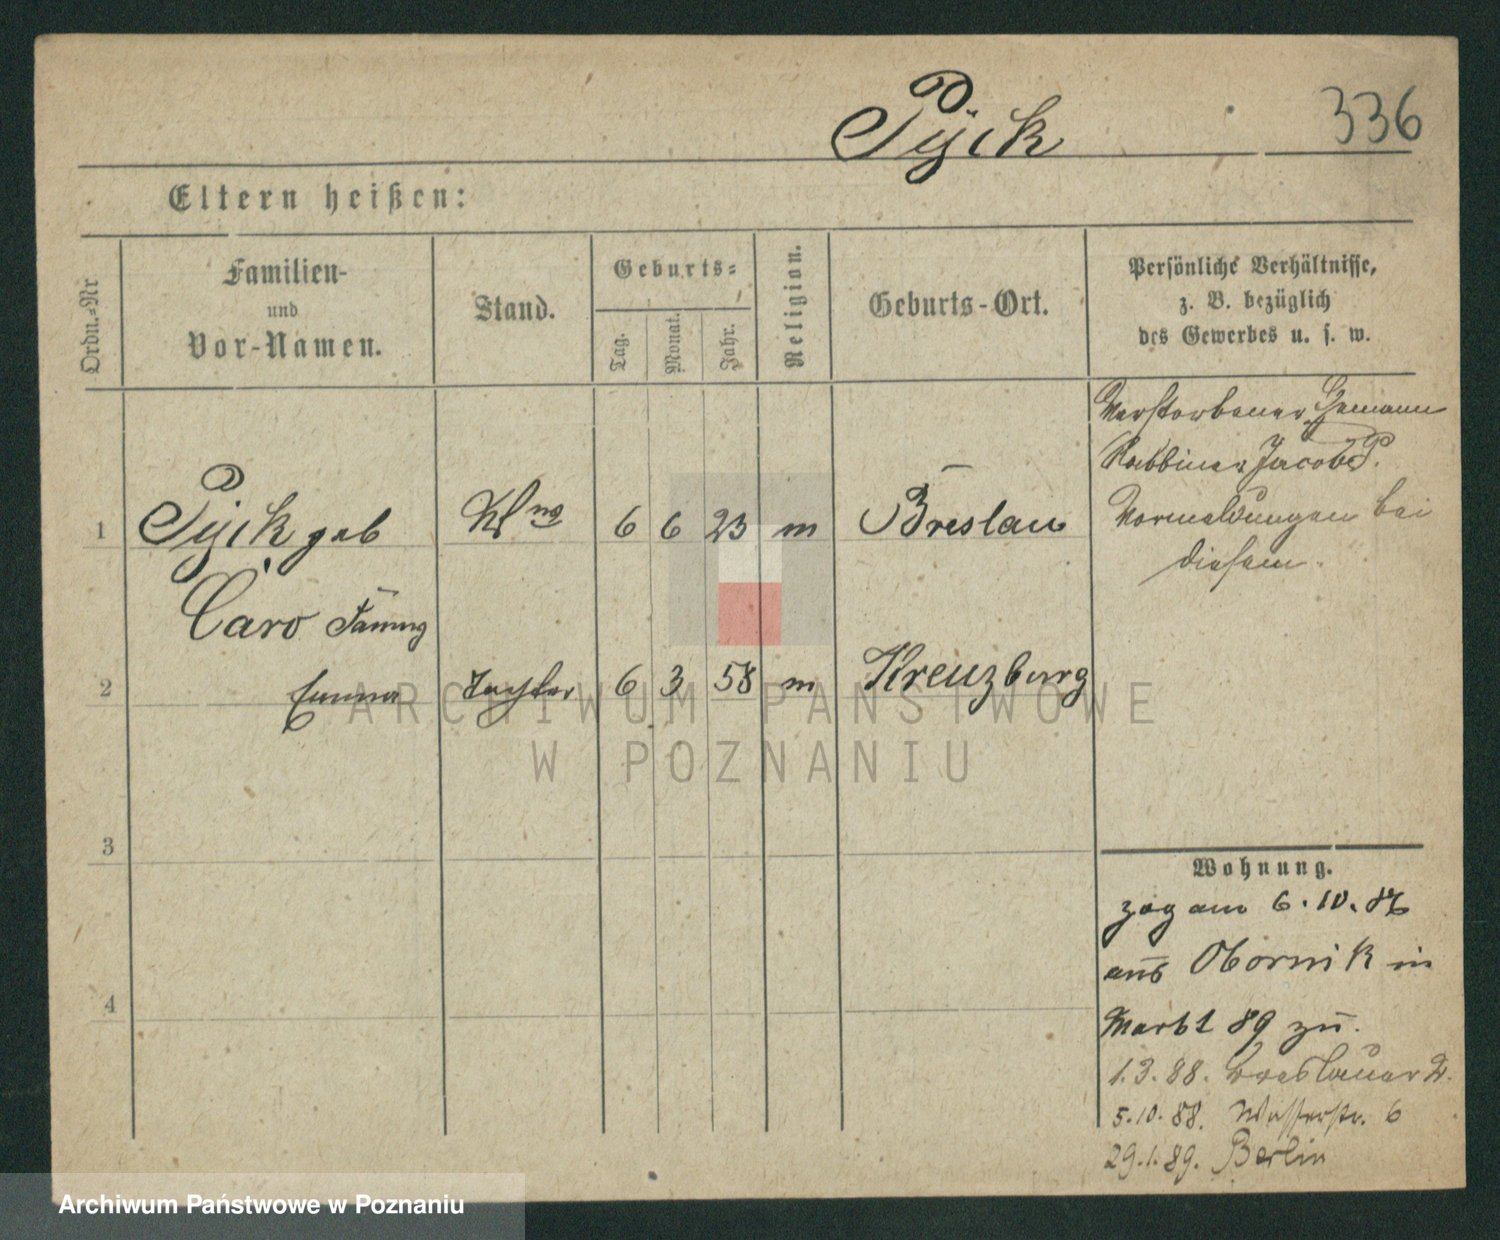 Pijck 336
Eltern heißen:
Ordn.-Nr
Familien-
und
Vor-Namen.
Stand.
Geburts-
Tag.
Monat.
Jahr.
Religion.
Geburts-Ort.
Persönliche Verhältnisse,
z. B. bezüglich
des Gewerbes u. s. w.
Verstorbener Ehemann
Rabbiner Jacob P.
Vormeldungen bei
diesem.
1 Pijck geb 6 6 23 m Breslau
Caro Fanny
2 Emma Tochter 6 3 58 m Kreuzburg
3
4
Wohnung.
zog am 6.10.86
aus Obornik in
Markt 89 zu.
1.3.88. Breslauer
5.10.88. Wasserstr. 6
29.1.89. Berlin
ARCHIWUM PAŃSTWOWE
W POZNANIU
Archiwum Państwowe w Poznaniu